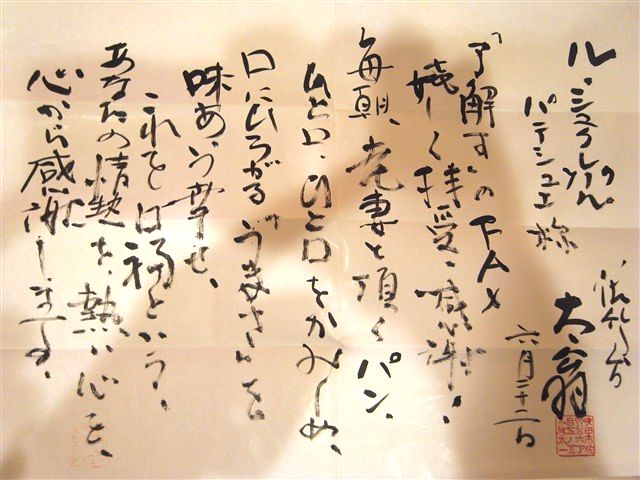 ル・シュクレクールの
パテシュエ様
「了解す」のFAX
嬉しく拝受、感謝!
毎朝、老妻と頂くパン、
ひと口、ひと口をかみしめ、
口にひろがる「うまさ」を
味あう幸せ、
これを口福という、
あなたの情熱を、熱い心を、
心から感謝します。
六月二十二日
太翁